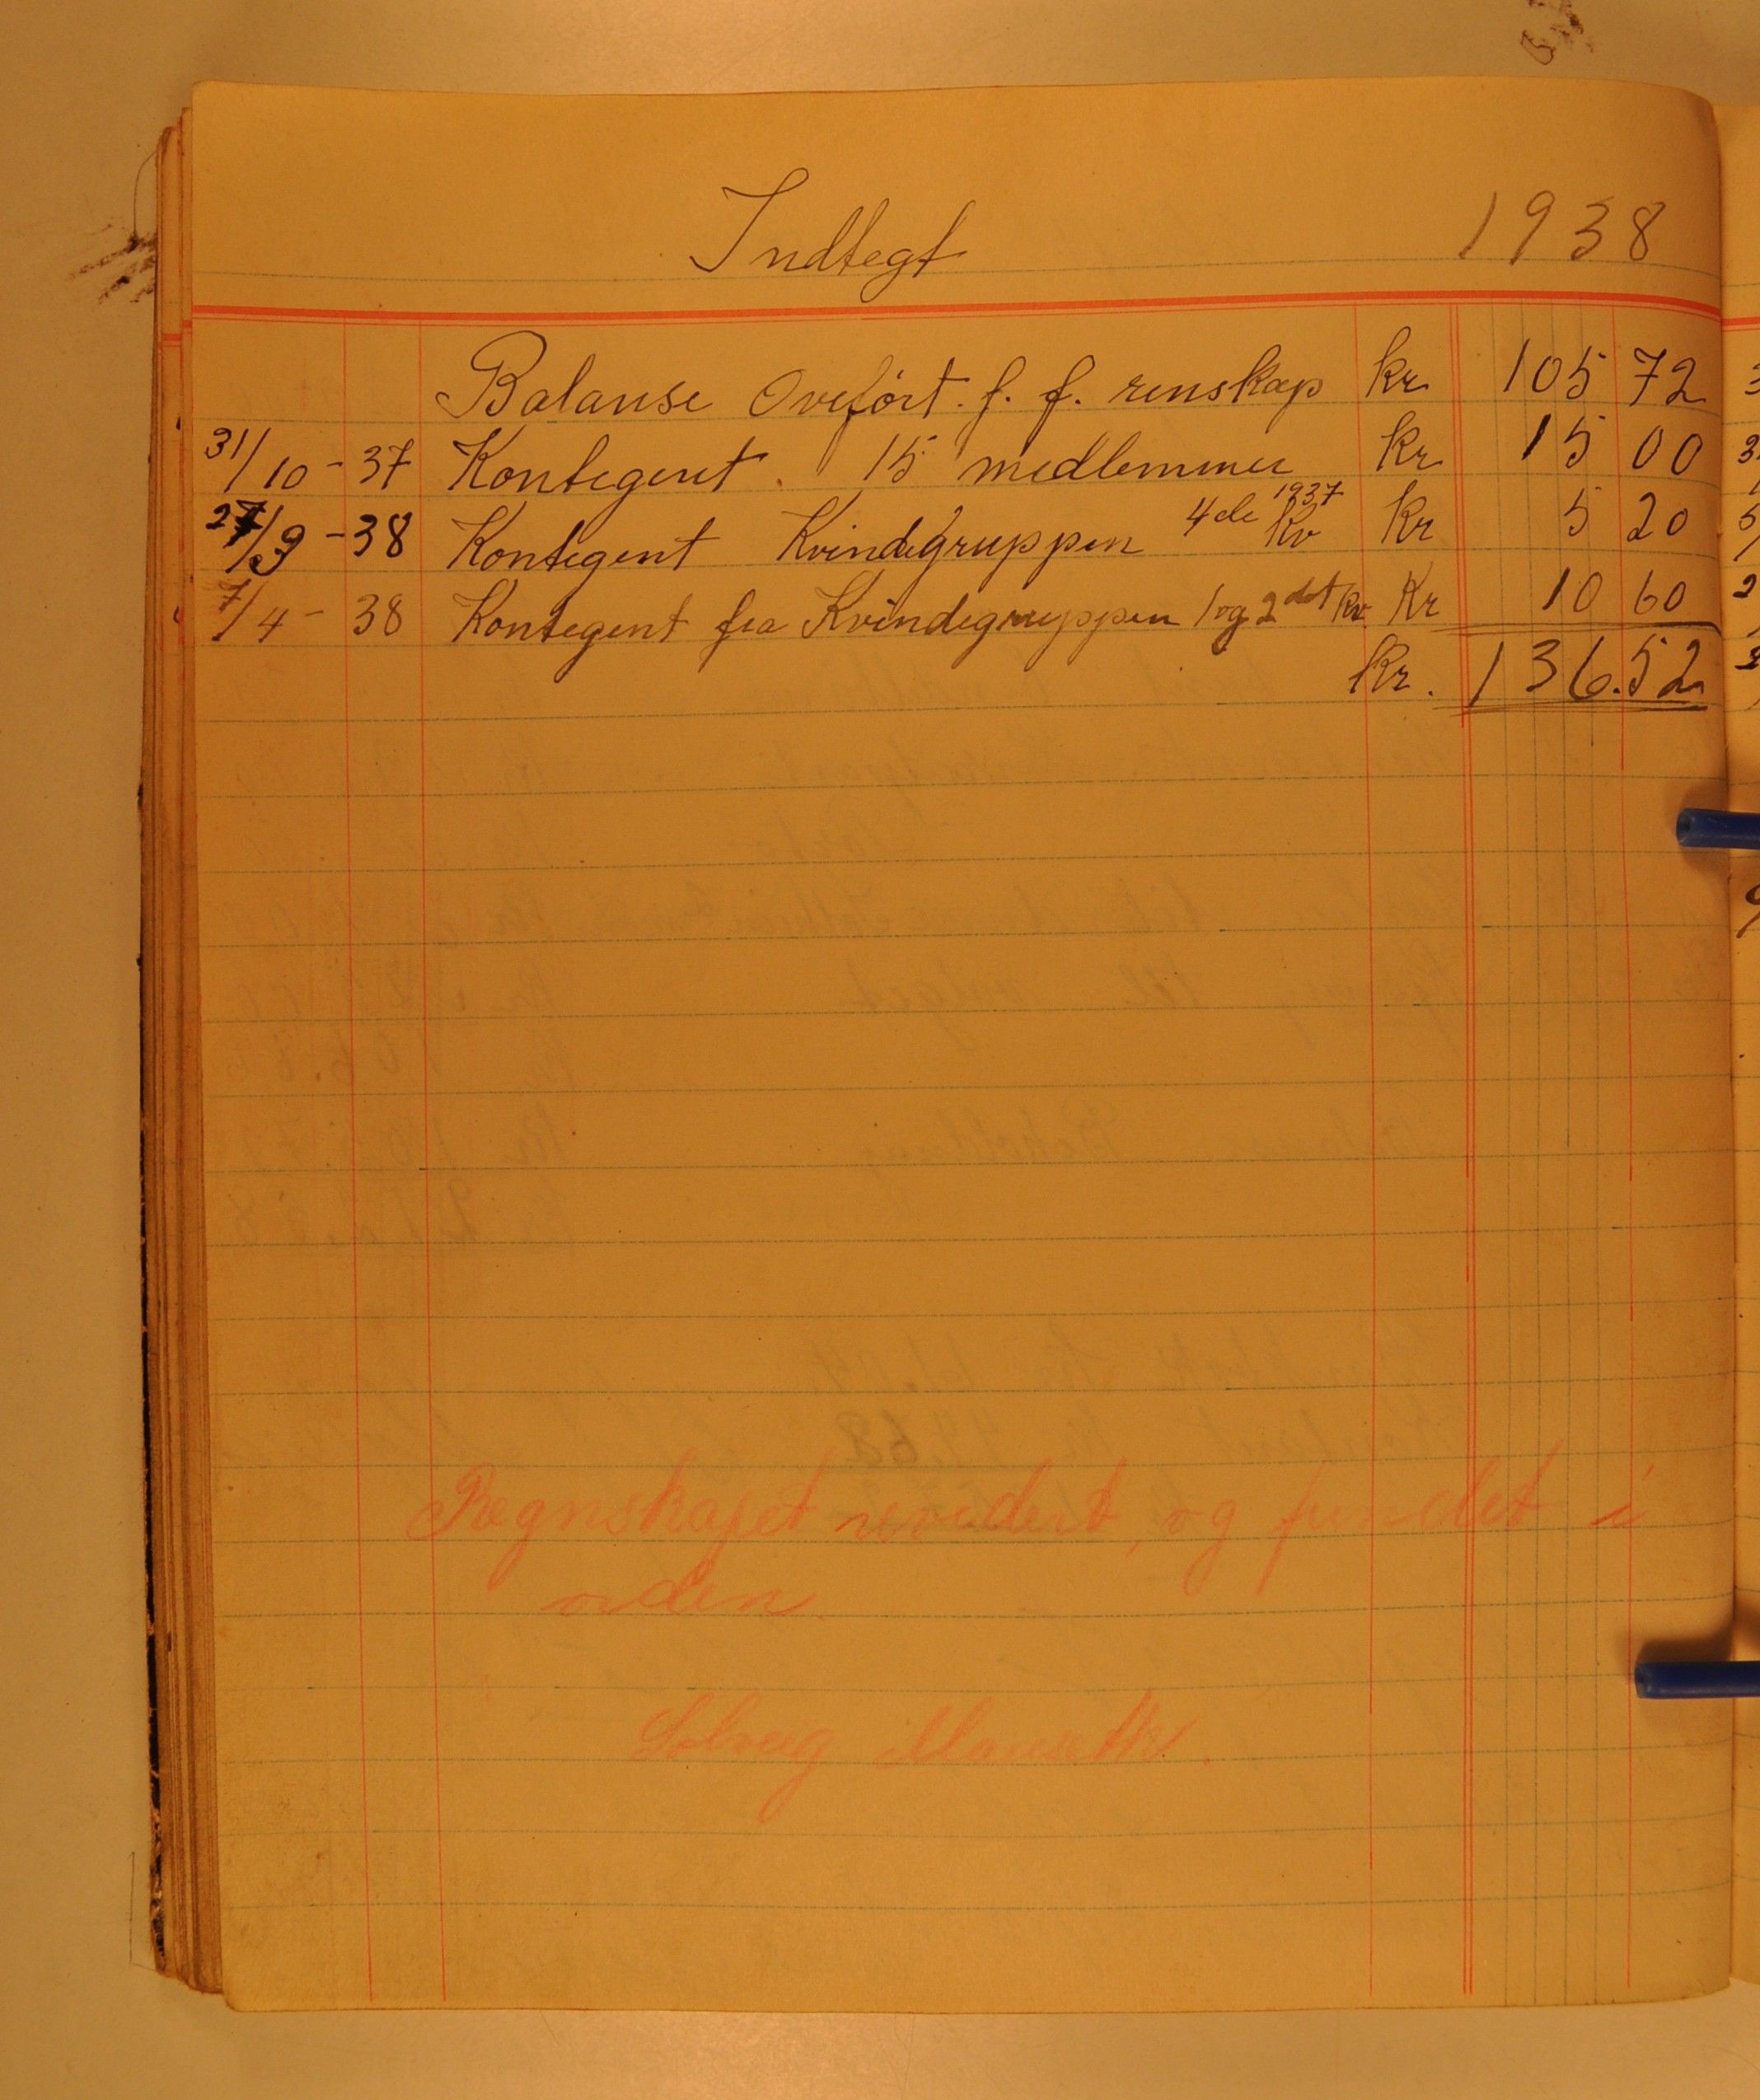 Indtegt 1938
Balanse Oveført. f. f. renskap kr 105 72
31/10 - 37 Kontegent. 15 medlemmer Kr 15 00
27/9 - 38 Kontegent Kvindegruppen 4de Kv 1937 Kr 5 20
7/4 - 38 Kontegent fra Kvindegruppen 1 og 2det kv. Kr 10 60
Kr. 136.52
Regnskapet revidert, og fundet i
orden.
Solveig